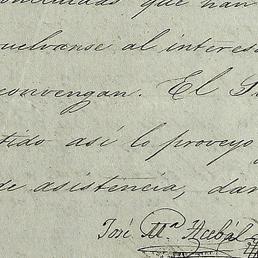 que han
vuelvanse al interes
convengan. El
tido así lo proveyo
de asistencia, dan
José Mª Acebal